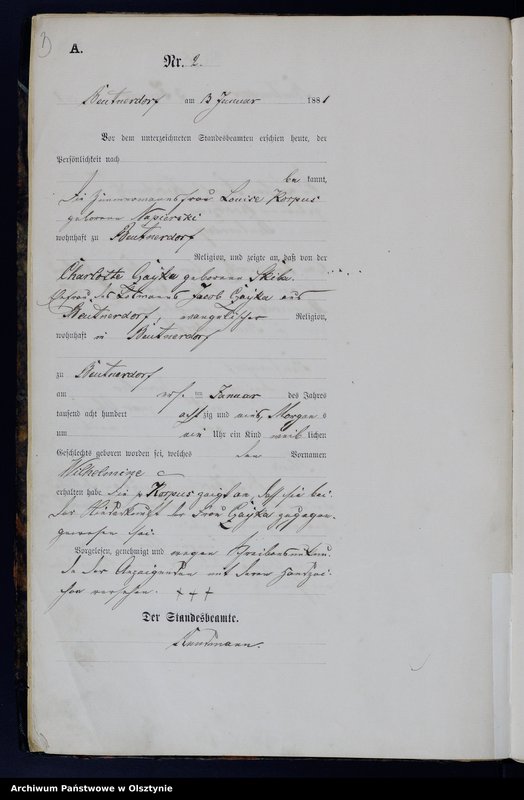 1)
A.
Nr. 2.
Beutnerdorf am 13 Januar 1881
Vor dem unterzeichneten Standesbeamten erschien heute, der
Persönlichkeit nach
be kannt,
die Zimmermannsfrau Louise Korpus
geborene Napierski
wohnhaft zu Beutnerdorf
Religion, und zeigte an, daß von der
Charlotte Gayka geborenen Skiba
Ehefrau des Jacob Gayka aus
Beutnerdorf, evangelischer Religion,
wohnhaft in Beutnerdorf
zu Beutnerdorf
am ten Januar des Jahres
tausend acht hundert acht zig und eins, Morgens
um ein Uhr ein Kind weib lichen
Geschlechts geboren worden sei, welches den Vornamen
Wilhelmine
erhalten habe. Die Korpus zeigt an, daß sie bei
der Niederkunft der Frau Gayka zugegen
gewesen sei.
Vorgelesen, genehmigt und wegen Schreibensunkun
de der Anzeigenden mit deren Handzei
chen versehen. + + +
Der Standesbeamte.
Archiwum Państwowe w Olsztynie